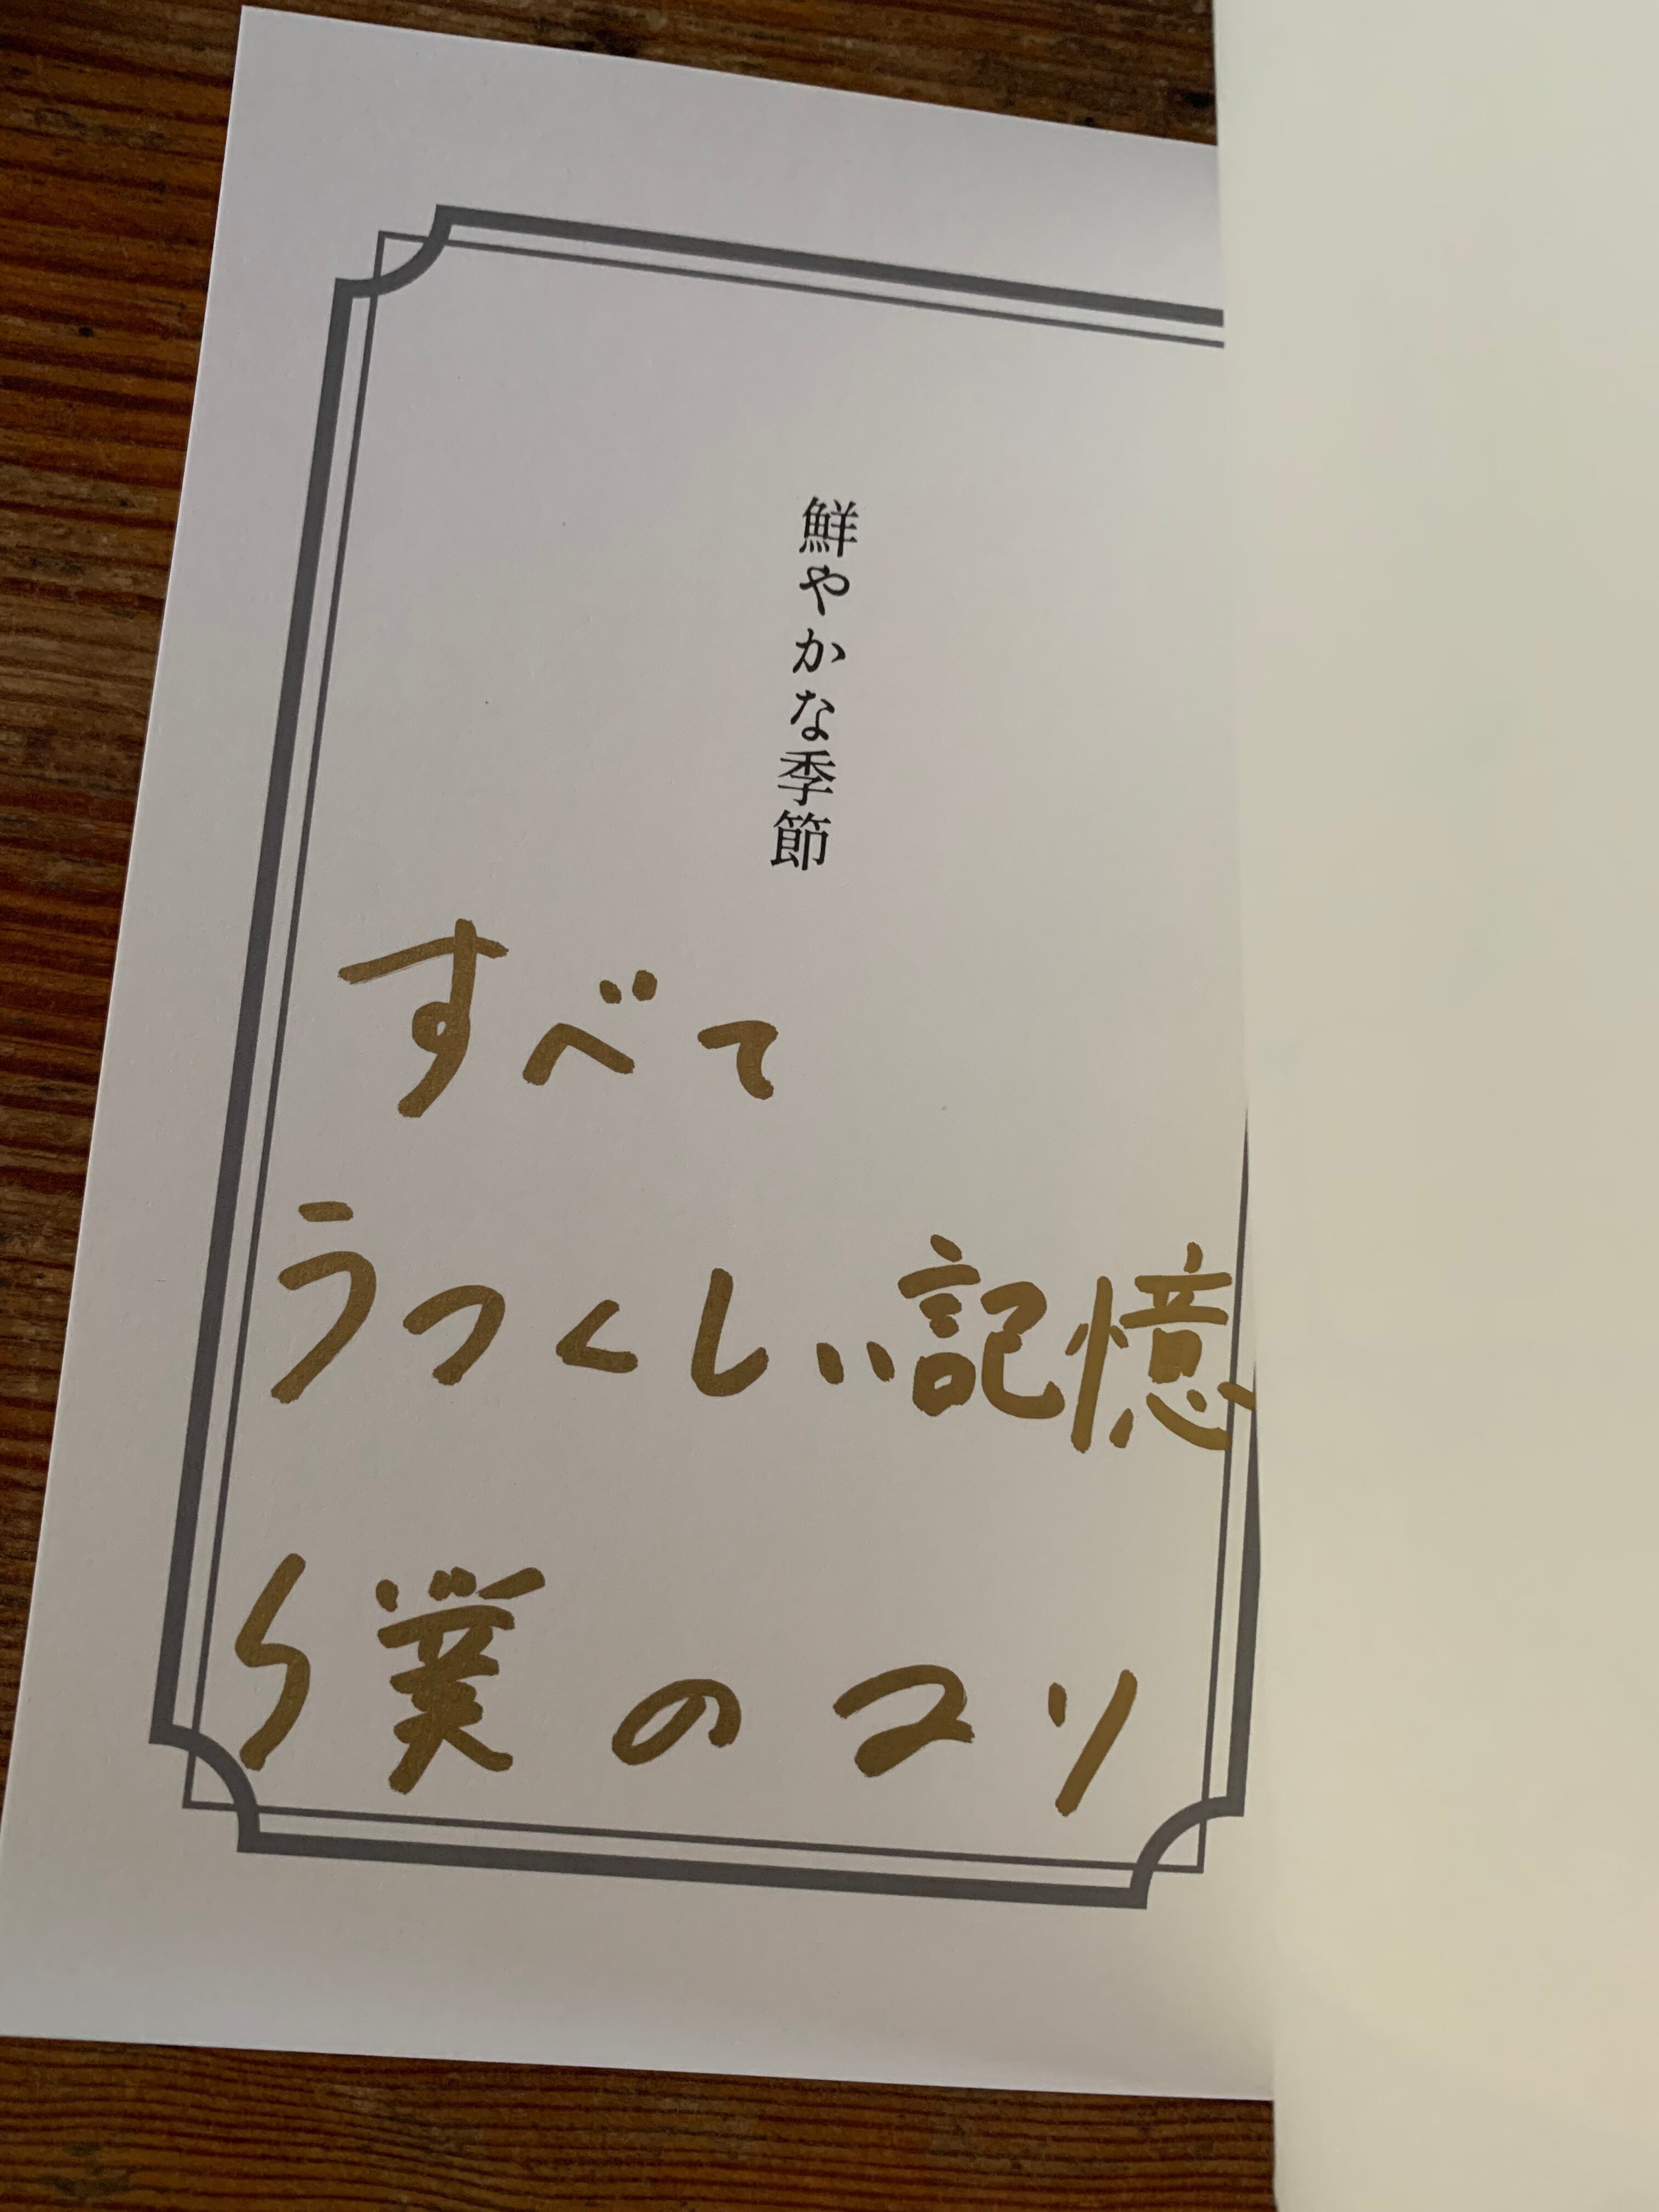 鮮やかな季節
すべて
うつくしい記憶
僕のコリ